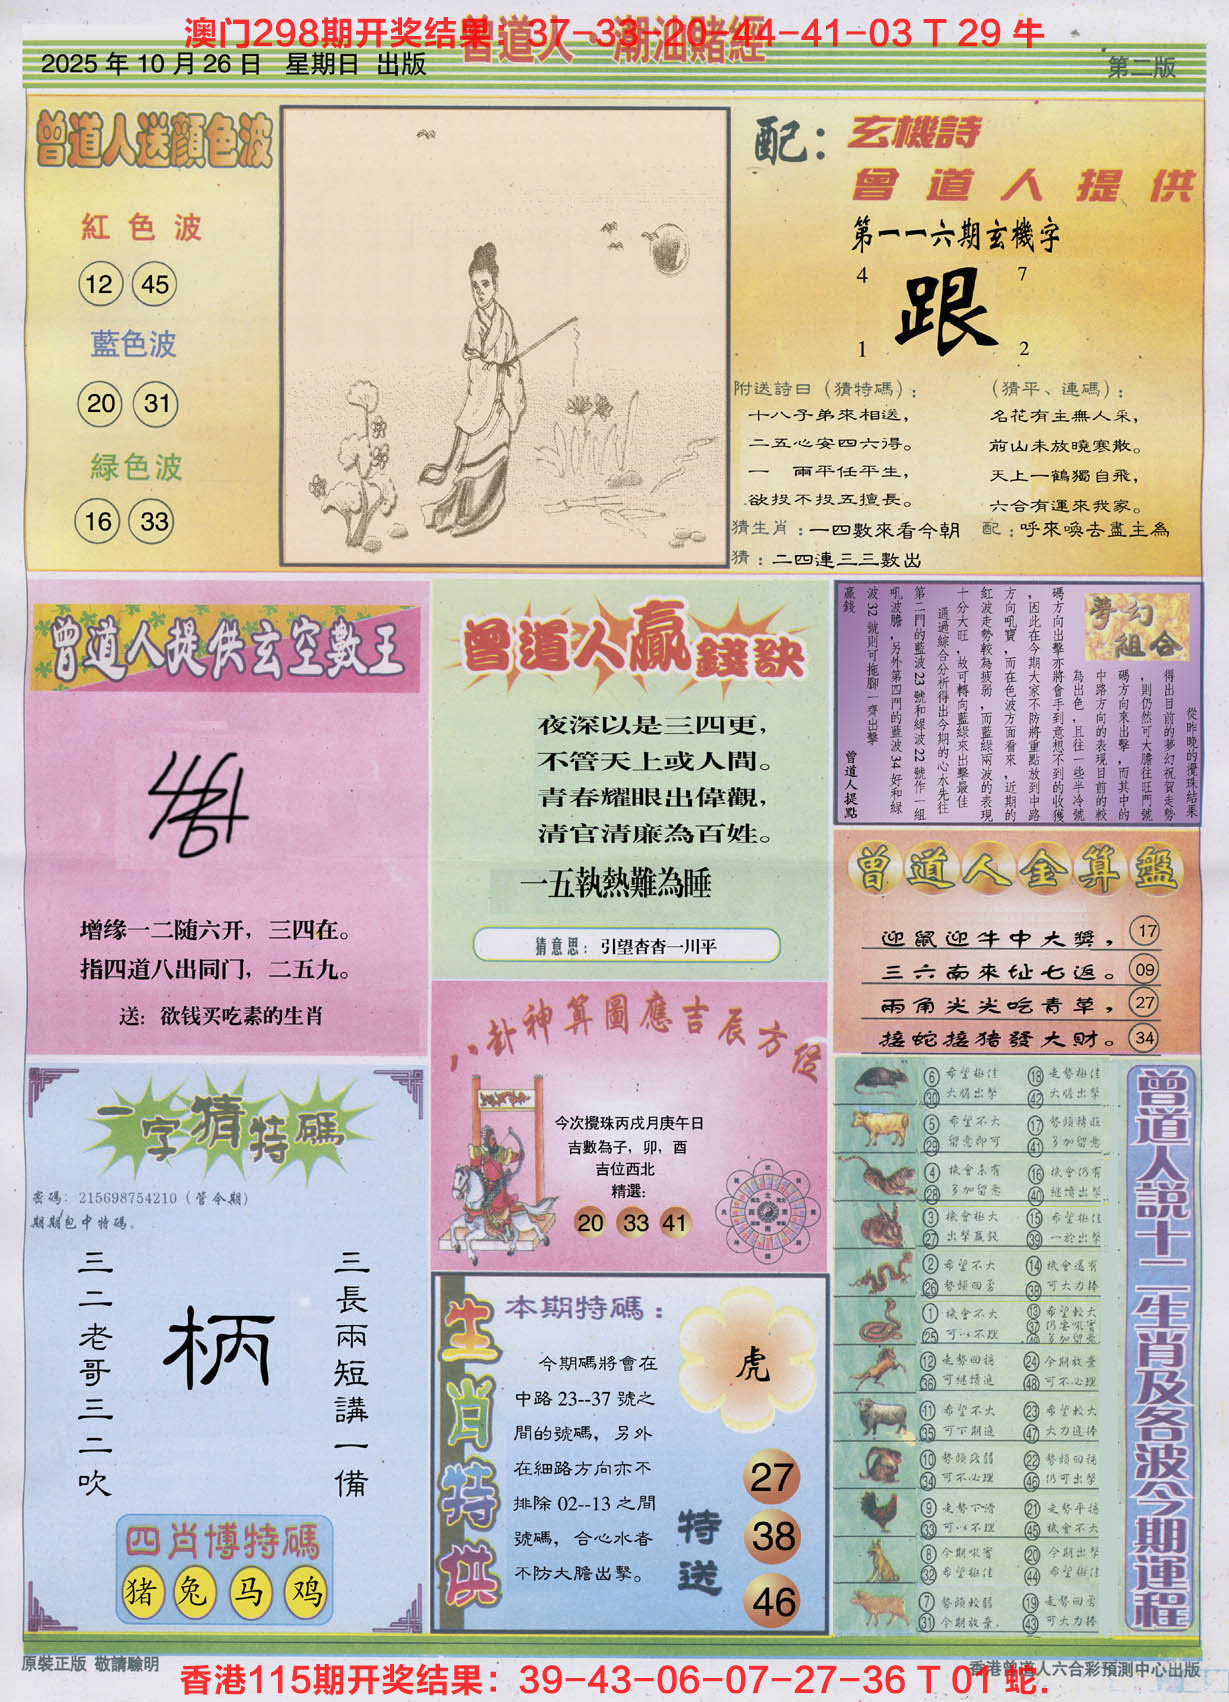 澳门298期开奖结果：37-33-20-44-41-03 T 29 牛
曾道人·潮汕賭經
2025 年 10 月 26 日 星期日 出版
第二版
曾道人送顏色波
紅色波
12 45
藍色波
20 31
緑色波
16 33
配：
玄機詩
曾道人提供
第一一六期玄機字
4 7
跟
1 2
附送詩曰（猜特碼）：
十八子弟來相送，
二五心安四六得。
一 兩平任平生，
欲投不投五擅長。
猜生肖：一四數來看今朝
猜：二四連三三數出
（猜平、連碼）：
名花有主無人采，
前山未放曉寒散。
天上一鶴獨自飛，
六合有運來我家。
配：呼來喚去盡主為
曾道人提供玄空數王
增缘一二随六开，三四在。
指四道八出同门，二五九。
送：欲钱买吃素的生肖
曾道人贏錢訣
夜深以是三四更，
不管天上或人間。
青春耀眼出偉觀，
清官清廉為百姓。
一五執熱難為睡
猜意思：引望杳杳一川平
夢幻組合
從昨晚的攪珠結果
得出目前的夢幻祝賀走勢
，則仍然可大膽往旺門號
碼方向來出擊，而其中的
中路方向的表現目前的較
為出色，且往一些半冷號
碼方向出擊亦將會手到意想不到的收獲
，因此在今期大家不防將重點放到中路
方向吼寶，而在色波方面看來，近期的
紅波走勢較為疲弱，而藍綠兩波的表現
十分大旺，故可轉向藍綠來出擊最佳
通過綜合分析得出今期的心水先往
第二門的藍波 23 號和綠波 22 號作一組
吼波膽，另外第四門的藍波 34 好和綠
波 32 號則可拖腳一齊出擊
贏錢
曾道人提點
曾道人金算盤
迎鼠迎牛中大獎， 17
三六南來址七返。 09
兩角尖尖吃青草， 27
接蛇接猪發大財。 34
八卦神算圖應吉辰方位
今次攪珠丙戌月庚午日
吉數為子，卯，酉
吉位西北
精選：
20 33 41
一字猜特碼
密碼：215698754210（管令期）
期期包中特碼。
三二老哥三二吹
柄
三長兩短講一備
四肖博特碼
猪 兔 马 鸡
生肖特供
本期特碼：
今期碼將會在
中路 23--37 號之
間的號碼，另外
在細路方向亦不
排除 02--13 之間
號碼，合心水者
不防大膽出擊。
虎
特送
27
38
46
曾道人説十二生肖及各波今期運程
6 希望極佳 18 走勢極佳
30 大膽出擊 42 大膽出擊
5 希望不大 17 勢頭轉旺
29 留意即可 41 多加留意
4 機會未有 16 機會仍有
28 多加留意 40 繼續出擊
3 機會極大 15 希望極佳
27 出擊贏錢 39 一於出擊
2 希望不大 14 機會還有
26 勢頭回勇 38 可大力捧
1 機會不大 13 希望較大
25 可以不理 37 仍要吼實
49 多加留意
12 走勢回穩 24 今期放棄
36 可繼續追 48 可不必理
11 希望不大 23 希望較大
35 可下期追 47 大力追捧
10 勢頭疲弱 22 勢頭回穩
34 可不必理 46 仍可出擊
9 走勢下滑 21 走勢平穩
33 可以不理 45 機會不大
8 今期吼實 20 今期出擊
32 希望極佳 44 希望極佳
7 勢頭較弱 19 走勢回勇
31 今期放棄. 43 可大力捧
原裝正版 敬請驗明
香港曾道人六合彩預測中心出版
香港115期开奖结果：39-43-06-07-27-36 T 01 蛇.